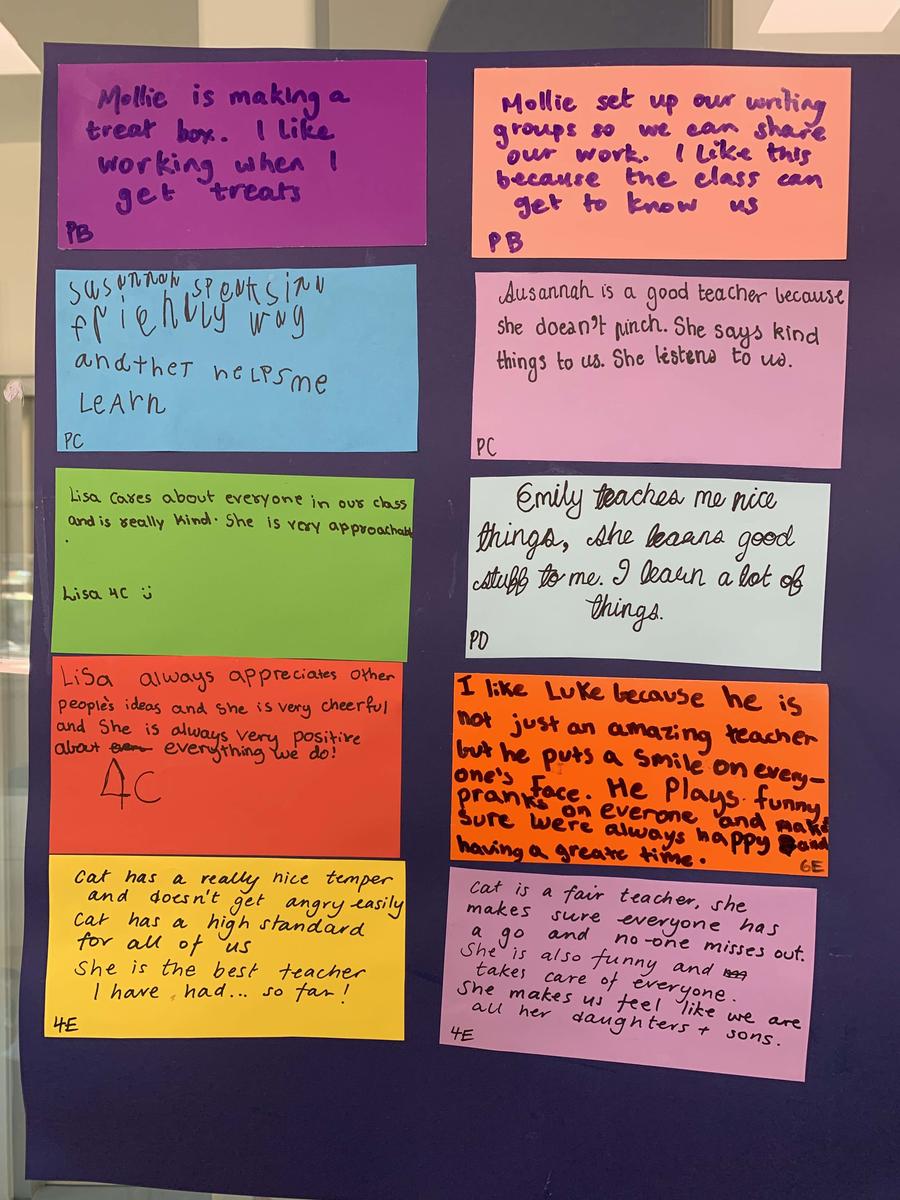 Mollie is making a
treat box. I like
working when I
get treats
PB
Mollie set up our writing
groups so we can share
our work. I like this
because the class can
get to know us
PB
Susannah speaks in a
friendly way
and thet helps me
Learn
PC
Susannah is a good teacher because
she doesn't pinch. She says kind
things to us. She listens to us.
PC
Lisa cares about everyone in our class
and is really kind. She is very approachable
.
Lisa 4C ü
Emily teaches me nice
things, she learns good
stuff to me. I learn a lot of
things.
PD
Lisa always appreciates other
people's ideas and she is very cheerful
and She is always very positive
about everything we do!
4C
I like Luke because he is
not just an amazing teacher
but he puts a smile on every-
one's face. He Plays funny
pranks on everone and make
sure were always happy and
having a greate time.
6E
Cat has a really nice temper
and doesn't get angry easily
Cat has a high standard
for all of us
She is the best teacher
I have had... so far!
4E
Cat is a fair teacher, she
makes sure everyone has
a go and no-one misses out.
She is also funny and
takes care of everyone.
She makes us feel like we are
all her daughters + sons.
4E